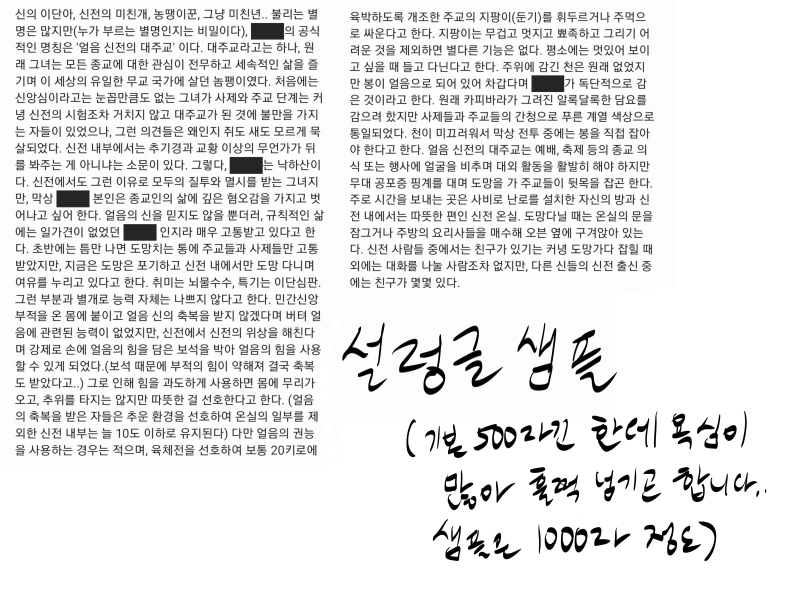 신의 이단아, 신전의 미친개, 농땡이꾼, 그냥 미친년.. 불리는 별
명은 많지만(누가 부르는 별명인지는 비밀이다), 의 공식
적인 명칭은 '얼음 신전의 대주교' 이다. 대주교라고는 하나, 원
래 그녀는 모든 종교에 대한 관심이 전무하고 세속적인 삶을 즐
기며 이 세상의 유일한 무교 국가에 살던 놈팽이였다. 처음에는
신앙심이라고는 눈꼽만큼도 없는 그녀가 사제와 주교 단계는 커
녕 신전의 시험조차 거치지 않고 대주교가 된 것에 불만을 가지
는 자들이 있었으나, 그런 의견들은 왜인지 쥐도 새도 모르게 묵
살되었다. 신전 내부에서는 추기경과 교황 이상의 무언가가 뒤
를 봐주는 게 아니냐는 소문이 있다. 그렇다, 는 낙하산이
다. 신전에서도 그런 이유로 모두의 질투와 멸시를 받는 그녀지
만, 막상 본인은 종교인의 삶에 깊은 혐오감을 가지고 벗
어나고 싶어 한다. 얼음의 신을 믿지도 않을 뿐더러, 규칙적인 삶
에는 일가견이 없었던 인지라 매우 고통받고 있다고 한
다. 초반에는 틈만 나면 도망치는 통에 주교들과 사제들만 고통
받았지만, 지금은 도망은 포기하고 신전 내에서만 도망 다니며
여유를 누리고 있다고 한다. 취미는 뇌물수수, 특기는 이단심판.
그런 부분과 별개로 능력 자체는 나쁘지 않다고 한다. 민간신앙
부적을 온 몸에 붙이고 얼음 신의 축복을 받지 않겠다며 버텨 얼
음에 관련된 능력이 없었지만, 신전에서 신전의 위상을 해친다
며 강제로 손에 얼음의 힘을 담은 보석을 박아 얼음의 힘을 사용
할 수 있게 되었다.(보석 때문에 부적의 힘이 약해져 결국 축복
도 받았다고..) 그로 인해 힘을 과도하게 사용하면 몸에 무리가
오고, 추위를 타지는 않지만 따뜻한 걸 선호한다고 한다. (얼음
의 축복을 받은 자들은 추운 환경을 선호하여 온실의 일부를 제
외한 신전 내부는 늘 10도 이하로 유지된다) 다만 얼음의 권능
을 사용하는 경우는 적으며, 육체전을 선호하여 보통 20키로에
육박하도록 개조한 주교의 지팡이(둔기)를 휘두르거나 주먹으
로 싸운다고 한다. 지팡이는 무겁고 멋지고 뾰족하고 그리기 어
려운 것을 제외하면 별다른 기능은 없다. 평소에는 멋있어 보이
고 싶을 때 들고 다닌다고 한다. 주위에 감긴 천은 원래 없었지
만 봉이 얼음으로 되어 있어 차갑다며 가 독단적으로 감
은 것이라고 한다. 원래 카피바라가 그려진 알록달록한 담요를
감으려 했지만 사제들과 주교들의 간청으로 푸른 계열 색상으로
통일되었다. 천이 미끄러워서 막상 전투 중에는 봉을 직접 잡아
야 한다고 한다. 얼음 신전의 대주교는 예배, 축제 등의 종교 의
식 또는 행사에 얼굴을 비추며 대외 활동을 활발히 해야 하지만
무대 공포증 핑계를 대며 도망을 가 주교들이 뒷목을 잡곤 한다.
주로 시간을 보내는 곳은 사비로 난로를 설치한 자신의 방과 신
전 내에서는 따뜻한 편인 신전 온실. 도망다닐 때는 온실의 문을
잠그거나 주방의 요리사들을 매수해 오븐 옆에 구겨앉아 있는
다. 신전 사람들 중에서는 친구가 있기는 커녕 도망가다 잡힐 때
외에는 대화를 나눌 사람조차 없지만, 다른 신들의 신전 출신 중
에는 친구가 몇몇 있다.
설렁글 샘플
(기본 500자긴 한데 욕심이
많아 훌쩍 넘기곤 합니다..
샘플은 1000자 정도)